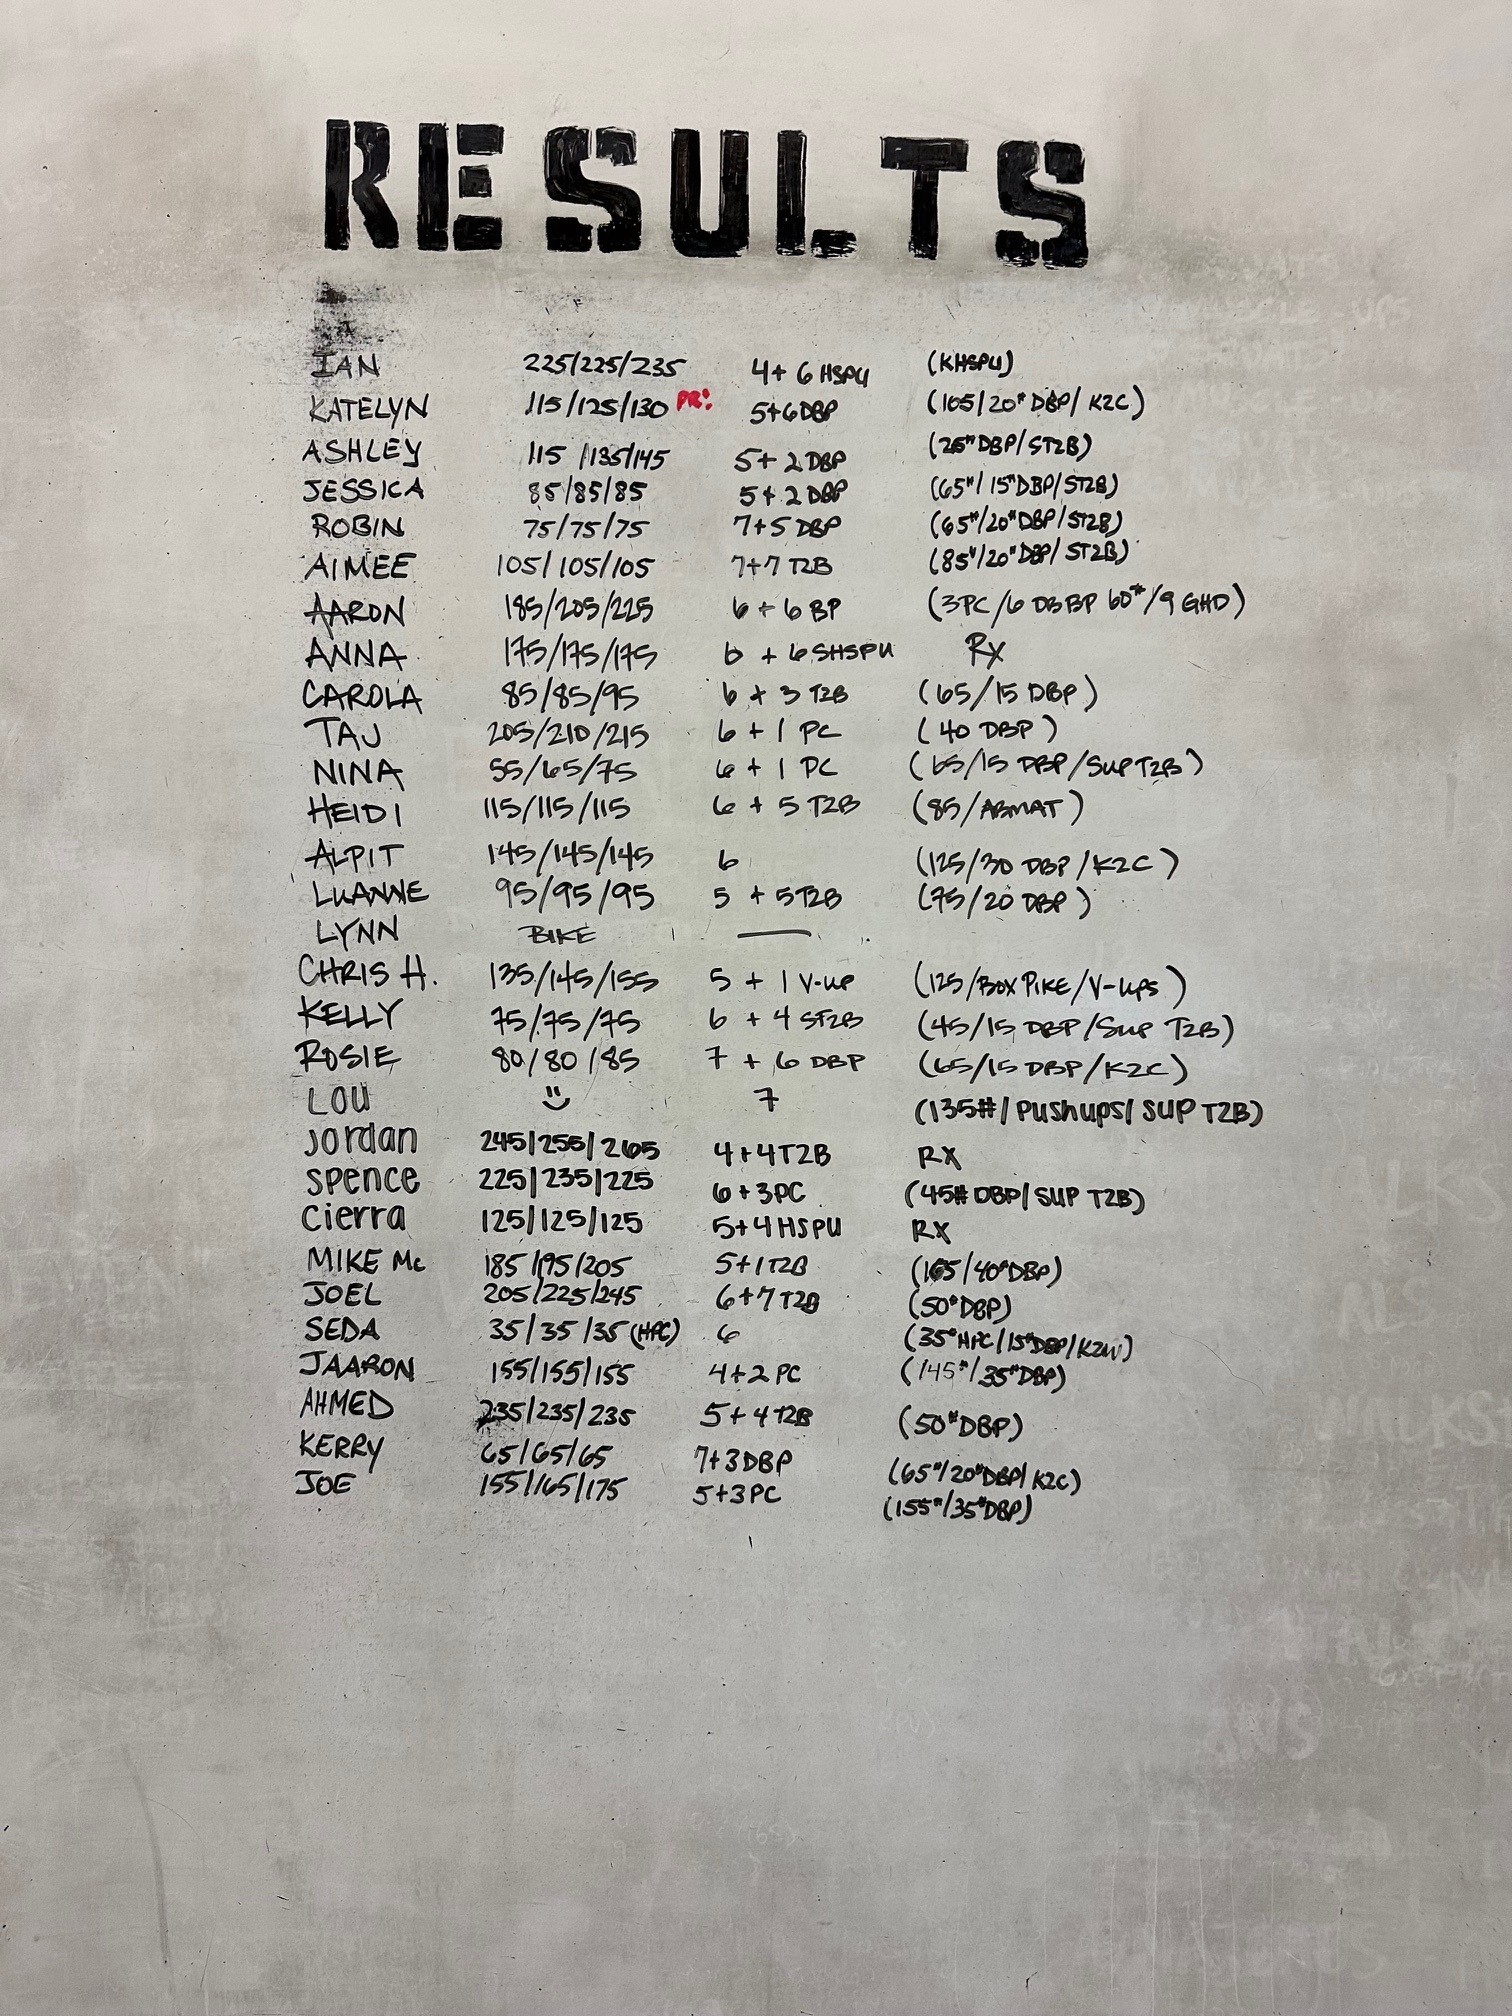 RESULTS
IAN 225/225/235 4+6 HSPU (KHSPU)
KATELYN 115/125/130 PR! 5+6 DBP (105/20# DBP/K2C)
ASHLEY 115/135/145 5+2 DBP (25# DBP/ST2B)
JESSICA 85/85/85 5+2 DBP (65#/15# DBP/ST2B)
ROBIN 75/75/75 7+5 DBP (65#/20# DBP/ST2B)
AIMEE 105/105/105 7+7 T2B (85#/20# DBP/ST2B)
AARON 185/205/225 6+6 BP (3PC/6 DBBP 60#/9 GHD)
ANNA 175/175/175 6 + 6 SHSPU RX
CAROLA 85/85/95 6 + 3 T2B (65/15 DBP)
TAJ 205/210/215 6 + 1 PC (40 DBP)
NINA 55/65/75 6 + 1 PC (65/15 DBP/SUP T2B)
HEIDI 115/115/115 6 + 5 T2B (85/ABMAT)
ALPIT 145/145/145 6 (125/30 DBP/K2C)
LUANNE 95/95/95 5 + 5 T2B (75/20 DBP)
LYNN BIKE —
CHRIS H. 135/145/155 5 + 1 V-UP (125/BOX PIKE/V-UPS)
KELLY 75/75/75 6 + 4 ST2B (45/15 DBP/SUP T2B)
ROSIE 80/80/85 7 + 6 DBP (65/15 DBP/K2C)
LOU 7 (135#/Pushups/SUP T2B)
Jordan 245/255/265 4+4 T2B RX
Spence 225/235/225 6+3PC (45# DBP/SUP T2B)
Cierra 125/125/125 5+4 HSPU RX
MIKE Mc 185/195/205 5+1 T2B (165/40# DBP)
JOEL 205/225/245 6+7 T2B (50# DBP)
SEDA 35/35/35 (HPC) 6 (35# HPC/15# DBP/K2W)
JAARON 155/155/155 4+2 PC (145#/35# DBP)
AHMED 235/235/235 5+4 T2B (50# DBP)
KERRY 65/65/65 7+3 DBP (65#/20# DBP/K2C)
JOE 155/165/175 5+3PC (155#/35# DBP)